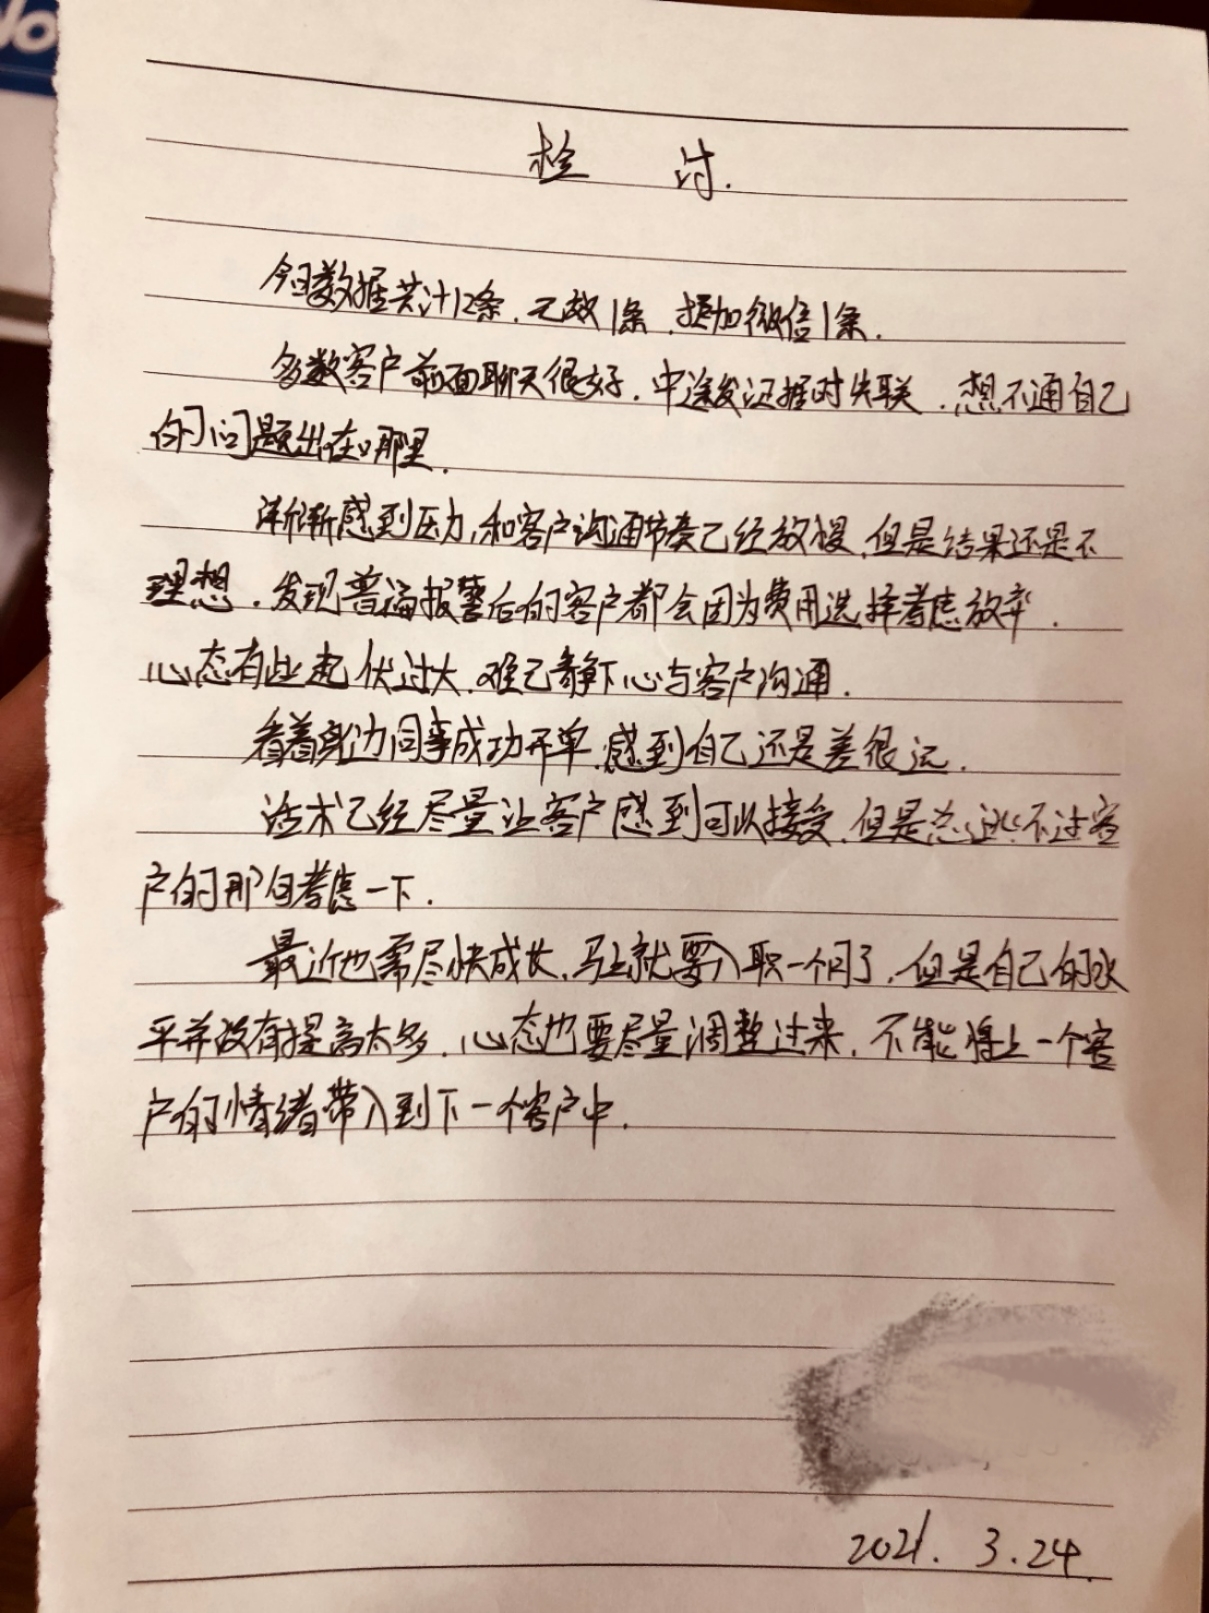 检 讨.
今日数据共计12条.无效1条.添加微信1条.
多数客户前面聊天很好.中途发证据时失联.想不通自己
的问题出在哪里.
渐渐感到压力,和客户沟通节奏已经放慢.但是结果还是不
理想.发现普遍报警后的客户都会因为费用选择考虑放弃.
心态有些起伏过大.难已静下心与客户沟通.
看着身边同事成功开单.感到自己还是差很远.
话术已经尽量让客户感到可以接受.但是总逃不过客
户的那句考虑一下.
最近也需尽快成长.马上就要入职一个月了.但是自己的水
平并没有提高太多.心态也要尽量调整过来.不能将上一个客
户的情绪带入到下一个客户中.
2021.3.24.